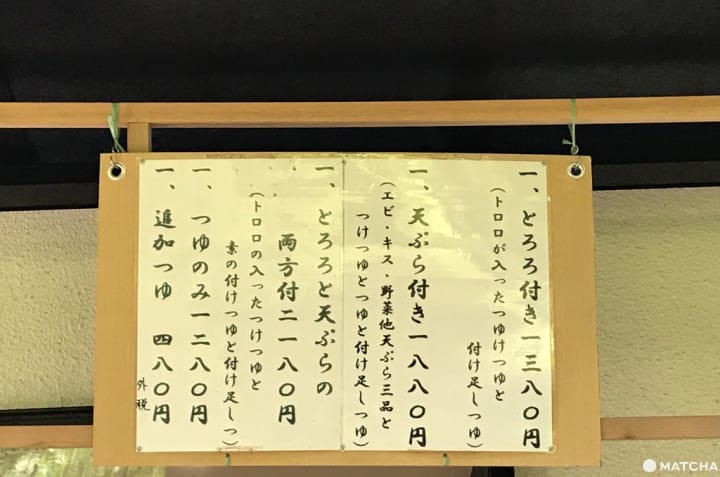 一、とろろ付き一三八〇円
(トロロが入ったつゆけつゆと
付け足しつゆ)
一、天ぷら付き一八八〇円
(エビ・キス・野菜他天ぷら三品と
つけつゆとつゆと付け足しつゆ)
一、とろろと天ぷらの
両方付二一八〇円
(トロロの入ったつけつゆと
素の付けつゆと付け足しつ)
一、つゆのみ一二八〇円
一、追加つゆ 四八〇円
外税
MATCHA